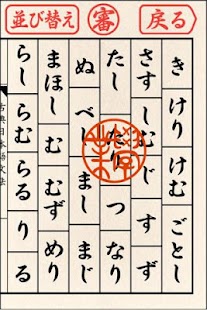 並び替え 審 戻る
き けり けむ ごとし
さす しむ じ す ず
たし たり つ なり
ぬ べし まし まじ
まほし む むず めり
らし らむ らる り る
古典日本語文法